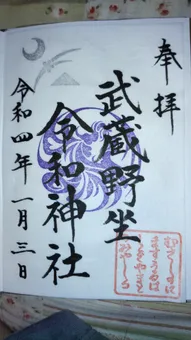 奉拝
武蔵野坐
令和神社
令和四年一月三日